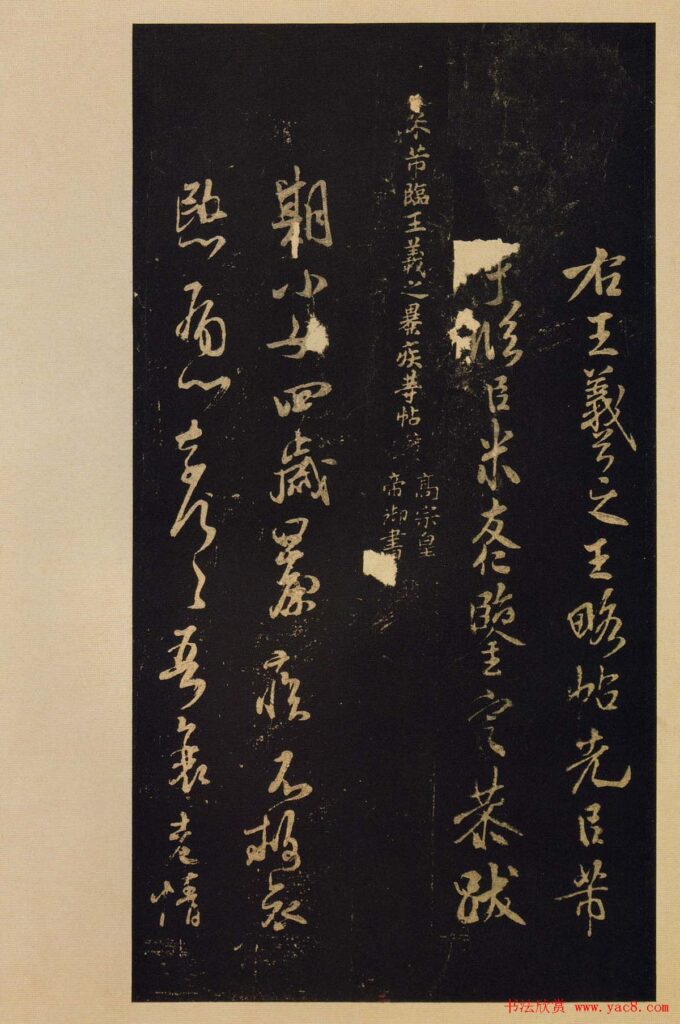 右王羲之王略帖先臣芾
手臨臣米友仁鑒定恭跋
米芾臨王羲之暴疾等帖
高宗皇
帝御書
期小女四歲暴疾不救哀
愍痛心奈何々吾衰老情
书法欣赏 www.yac8.com